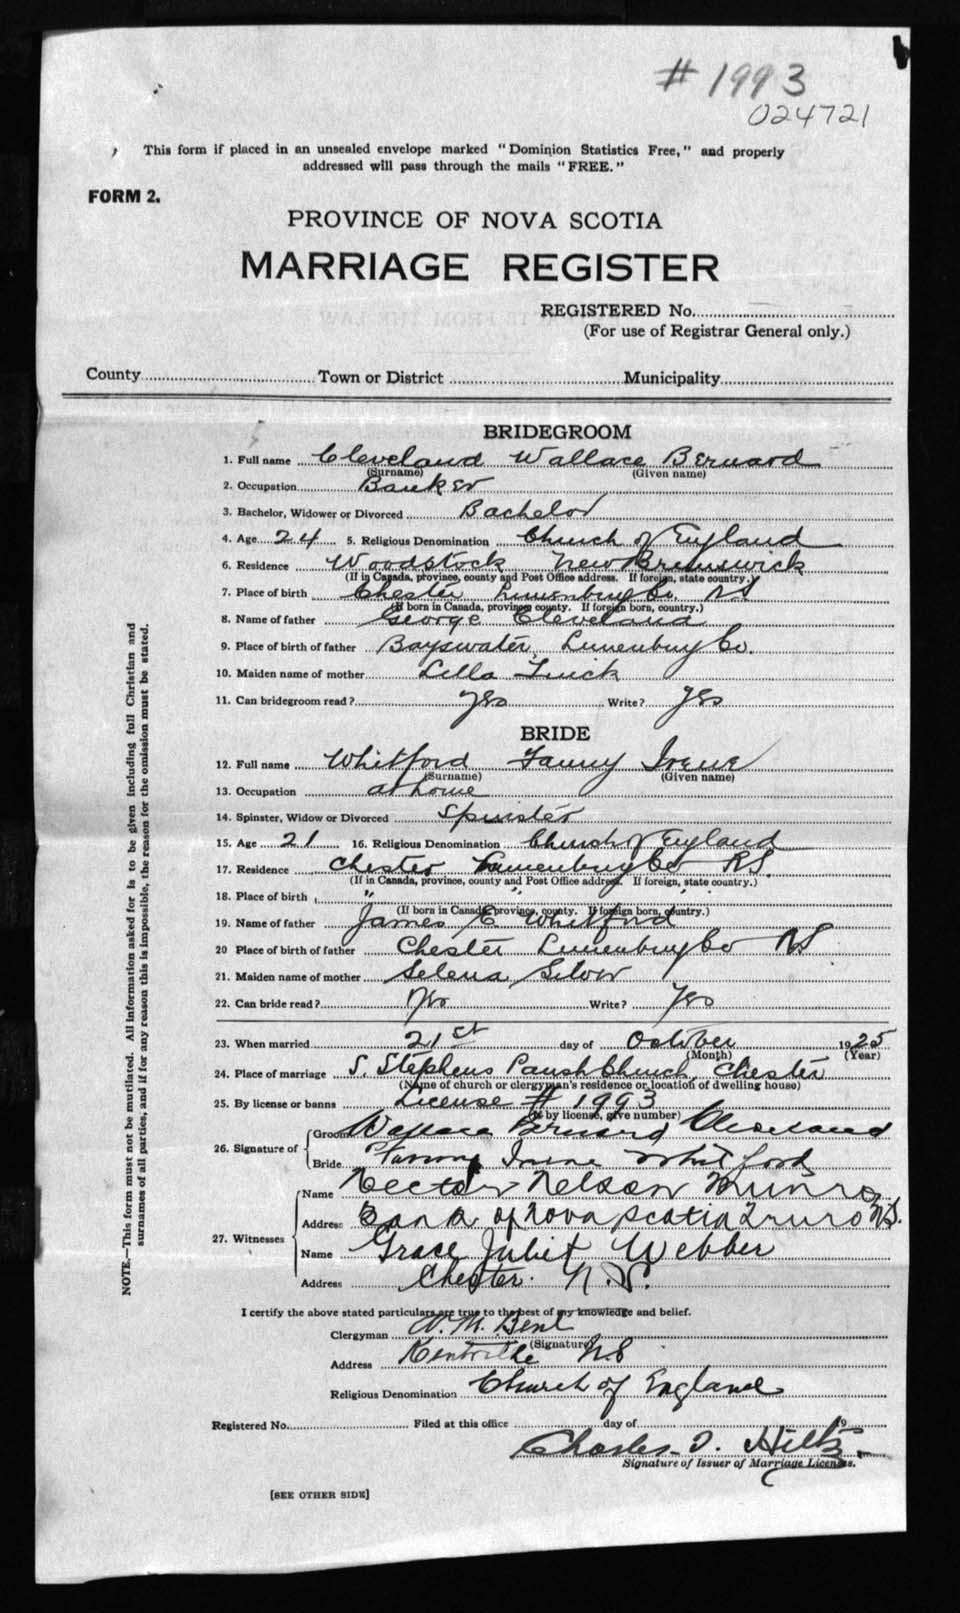 # 1993
024721
This form if placed in an unsealed envelope marked "Dominion Statistics Free," and properly
addressed will pass through the mails "FREE."
FORM 2.
PROVINCE OF NOVA SCOTIA
MARRIAGE REGISTER
REGISTERED No.
(For use of Registrar General only.)
County Town or District Municipality
BRIDEGROOM
1. Full name Cleveland Wallace Bernard
(Surname) (Given name)
2. Occupation Banker
3. Bachelor, Widower or Divorced Bachelor
4. Age 24 5. Religious Denomination Church of England
6. Residence Woodstock New Brunswick
(If in Canada, province, county and Post Office address. If foreign, state country.)
7. Place of birth Chester Lunenburg Co. N.S.
(If born in Canada, province, county. If foreign born, country.)
8. Name of father George Cleveland
9. Place of birth of father Bayswater, Lunenburg Co.
10. Maiden name of mother Lella
11. Can bridegroom read? Yes Write? Yes
BRIDE
12. Full name Whitford Fanny Irene
(Surname) (Given name)
13. Occupation at home
14. Spinster, Widow or Divorced Spinster
15. Age 21 16. Religious Denomination Church of England
17. Residence Chester Lunenburg Co N.S.
(If in Canada, province, county and Post Office address. If foreign, state country.)
18. Place of birth " " "
(If born in Canada, province, county. If foreign born, country.)
19. Name of father James E. Whitford
20 Place of birth of father Chester Lunenburg Co N.S
21. Maiden name of mother Selena Silver
22. Can bride read? Yes Write? Yes
23. When married 21st day of October 1925
(Month) (Year)
24. Place of marriage S. Stephens Parish Church, Chester
(Name of church or clergyman's residence or location of dwelling house)
25. By license or banns License # 1993
(If by license, give number)
26. Signature of Groom Wallace Bernard Cleveland
Bride Fanny Irene Whitford
27. Witnesses Name Hector Nelson Munro
Address Bank of Nova Scotia Truro N.S.
Name Grace Juliet Webber
Address Chester. N.S.
I certify the above stated particulars are true to the best of my knowledge and belief.
Clergyman W. M. Bent
(Signature)
Address Kentville N.S
Religious Denomination Church of England
Registered No. Filed at this office day of 19
Charles I. Hiltz
Signature of Issuer of Marriage Licenses.
[SEE OTHER SIDE]
NOTE.—This form must not be mutilated. All information asked for is to be given including full Christian and
surnames of all parties, and if for any reason this is impossible, the reason for the omission must be stated.